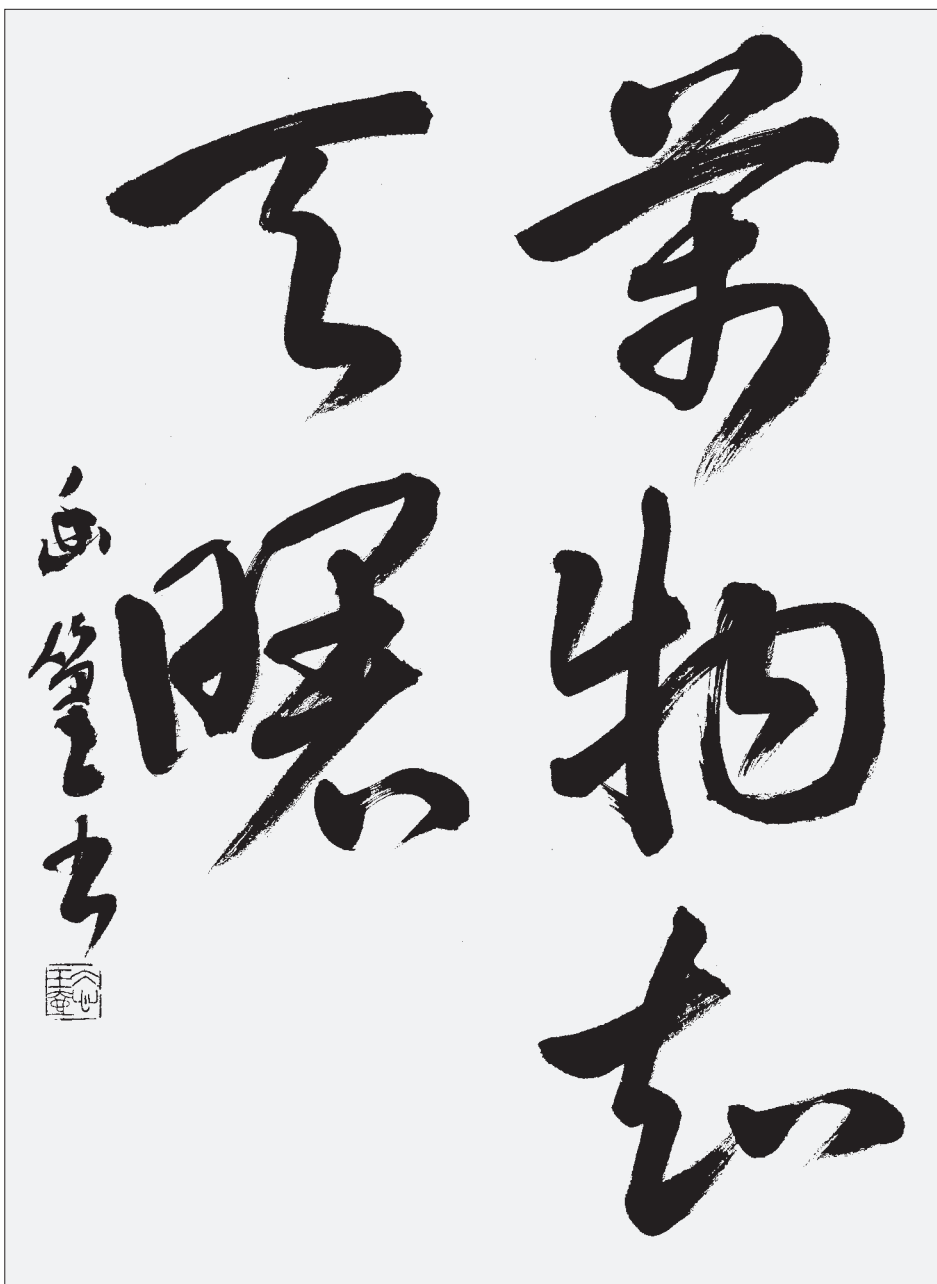 萬物知
天曙
篁書